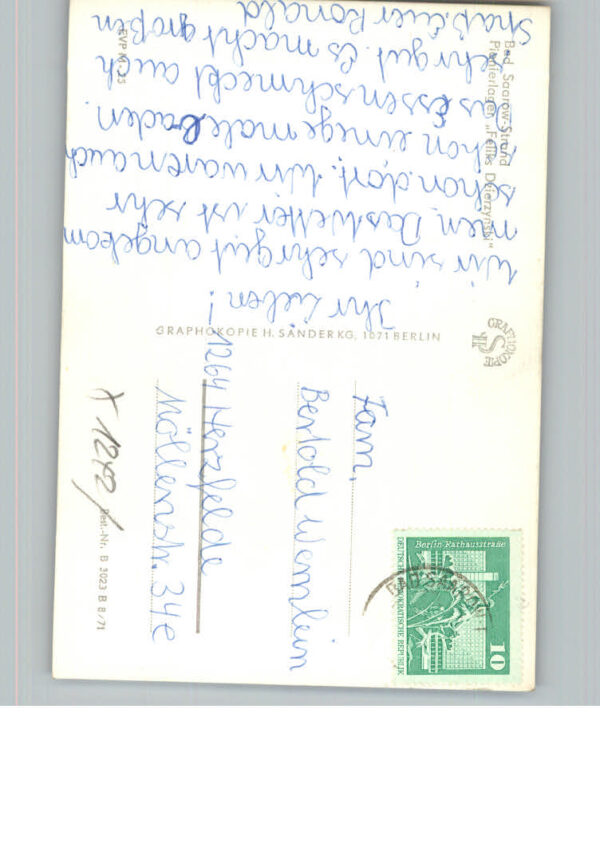 Bad Saarow-Strand
Pionierlager „Feliks Dzierzynski"
Ihr Lieben!
Wir sind sehr gut angekom
men. Das Wetter ist sehr
schön dort. Wir waren auch
schon einige male baden.
Das Essen schmeckt auch
sehr gut. Es macht großen
Spaß. Euer Ronald
EVP M -,25
GRAPHOKOPIE H. SANDER KG, 1071 BERLIN
GRAPHOKOPIE
HS
Fam.
Bertold Wernlein
1264 Herzfelde
Möllenstr. 34e
X 1272/
Best.-Nr. B 3023 B 8/71
Berlin-Rathausstraße
DEUTSCHE DEMOKRATISCHE REPUBLIK
10
BAD SAAROW